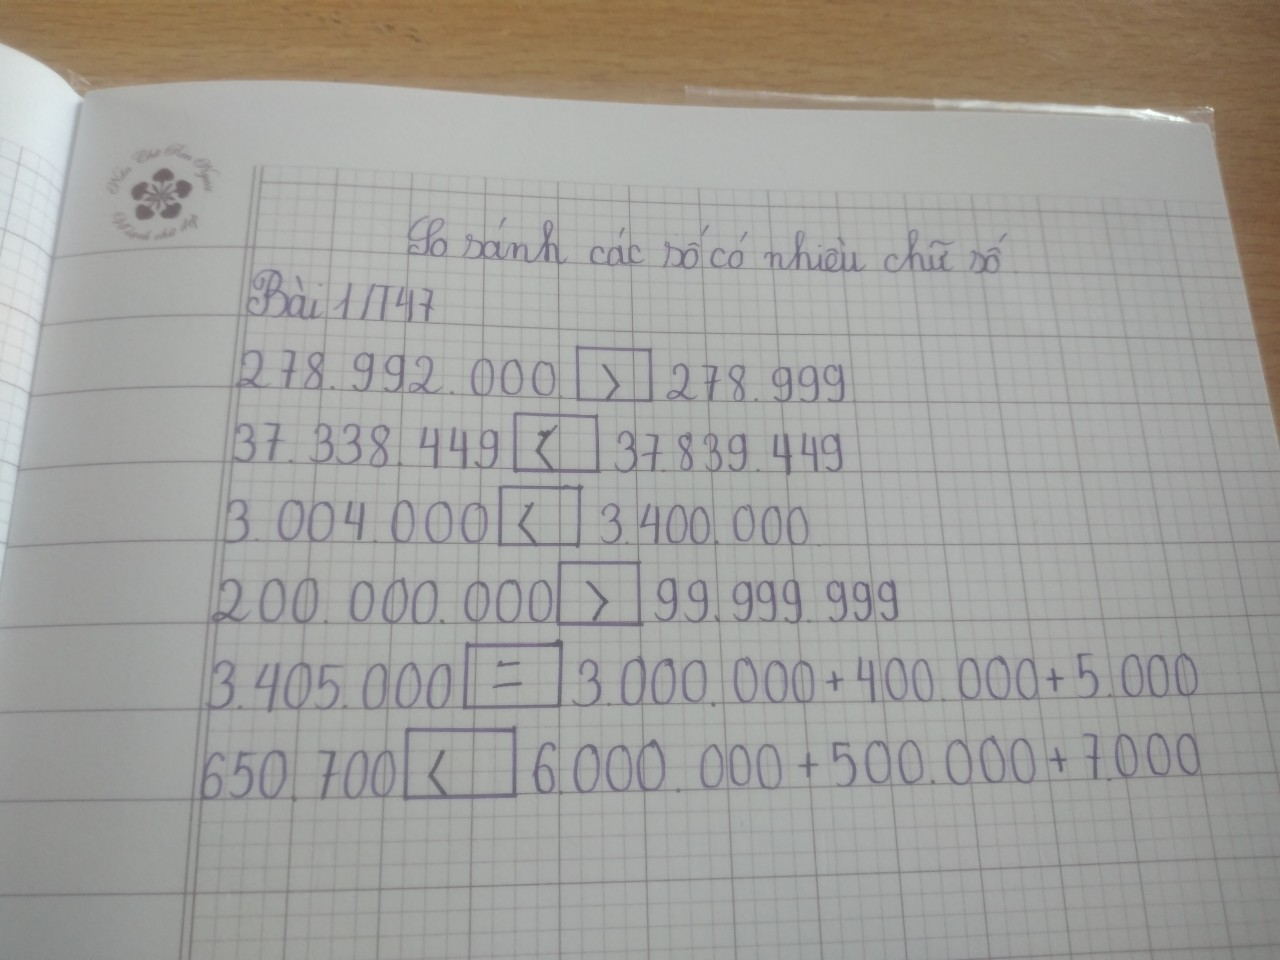 Nếu Chữ Am Người
So sánh các số có nhiều chữ số
Bài 1/T47
278.992.000 > 278.999
37.338.449 < 37.839.449
3.004.000 < 3.400.000
200.000.000 > 99.999.999
3.405.000 = 3.000.000+400.000+5.000
650.700 < 6.000.000+500.000+7.000